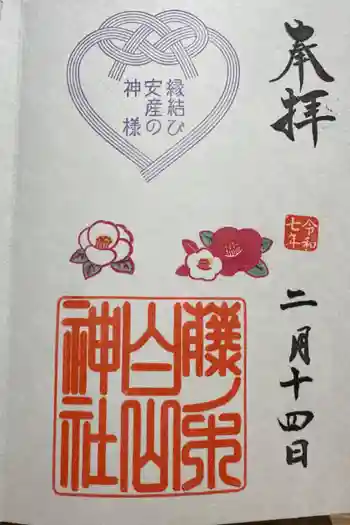 奉拝
令和
七年
二月十四日
縁結び
安産の
神様
藤ノ木
白山
神社